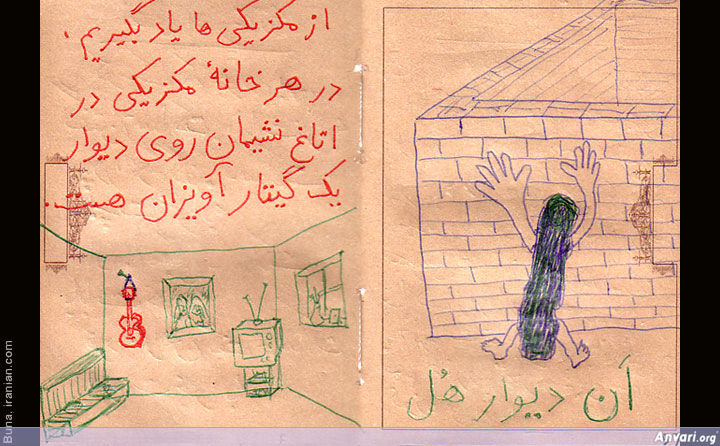 از مکزیکی ها یاد بگیریم.
در هر خانهٔ مکزیکی در
اتاغ نشیمان روی دیوار
یک گیتار آویزان هست.
آن دیوار هُل
Buna. iranian.com
Anvari.org